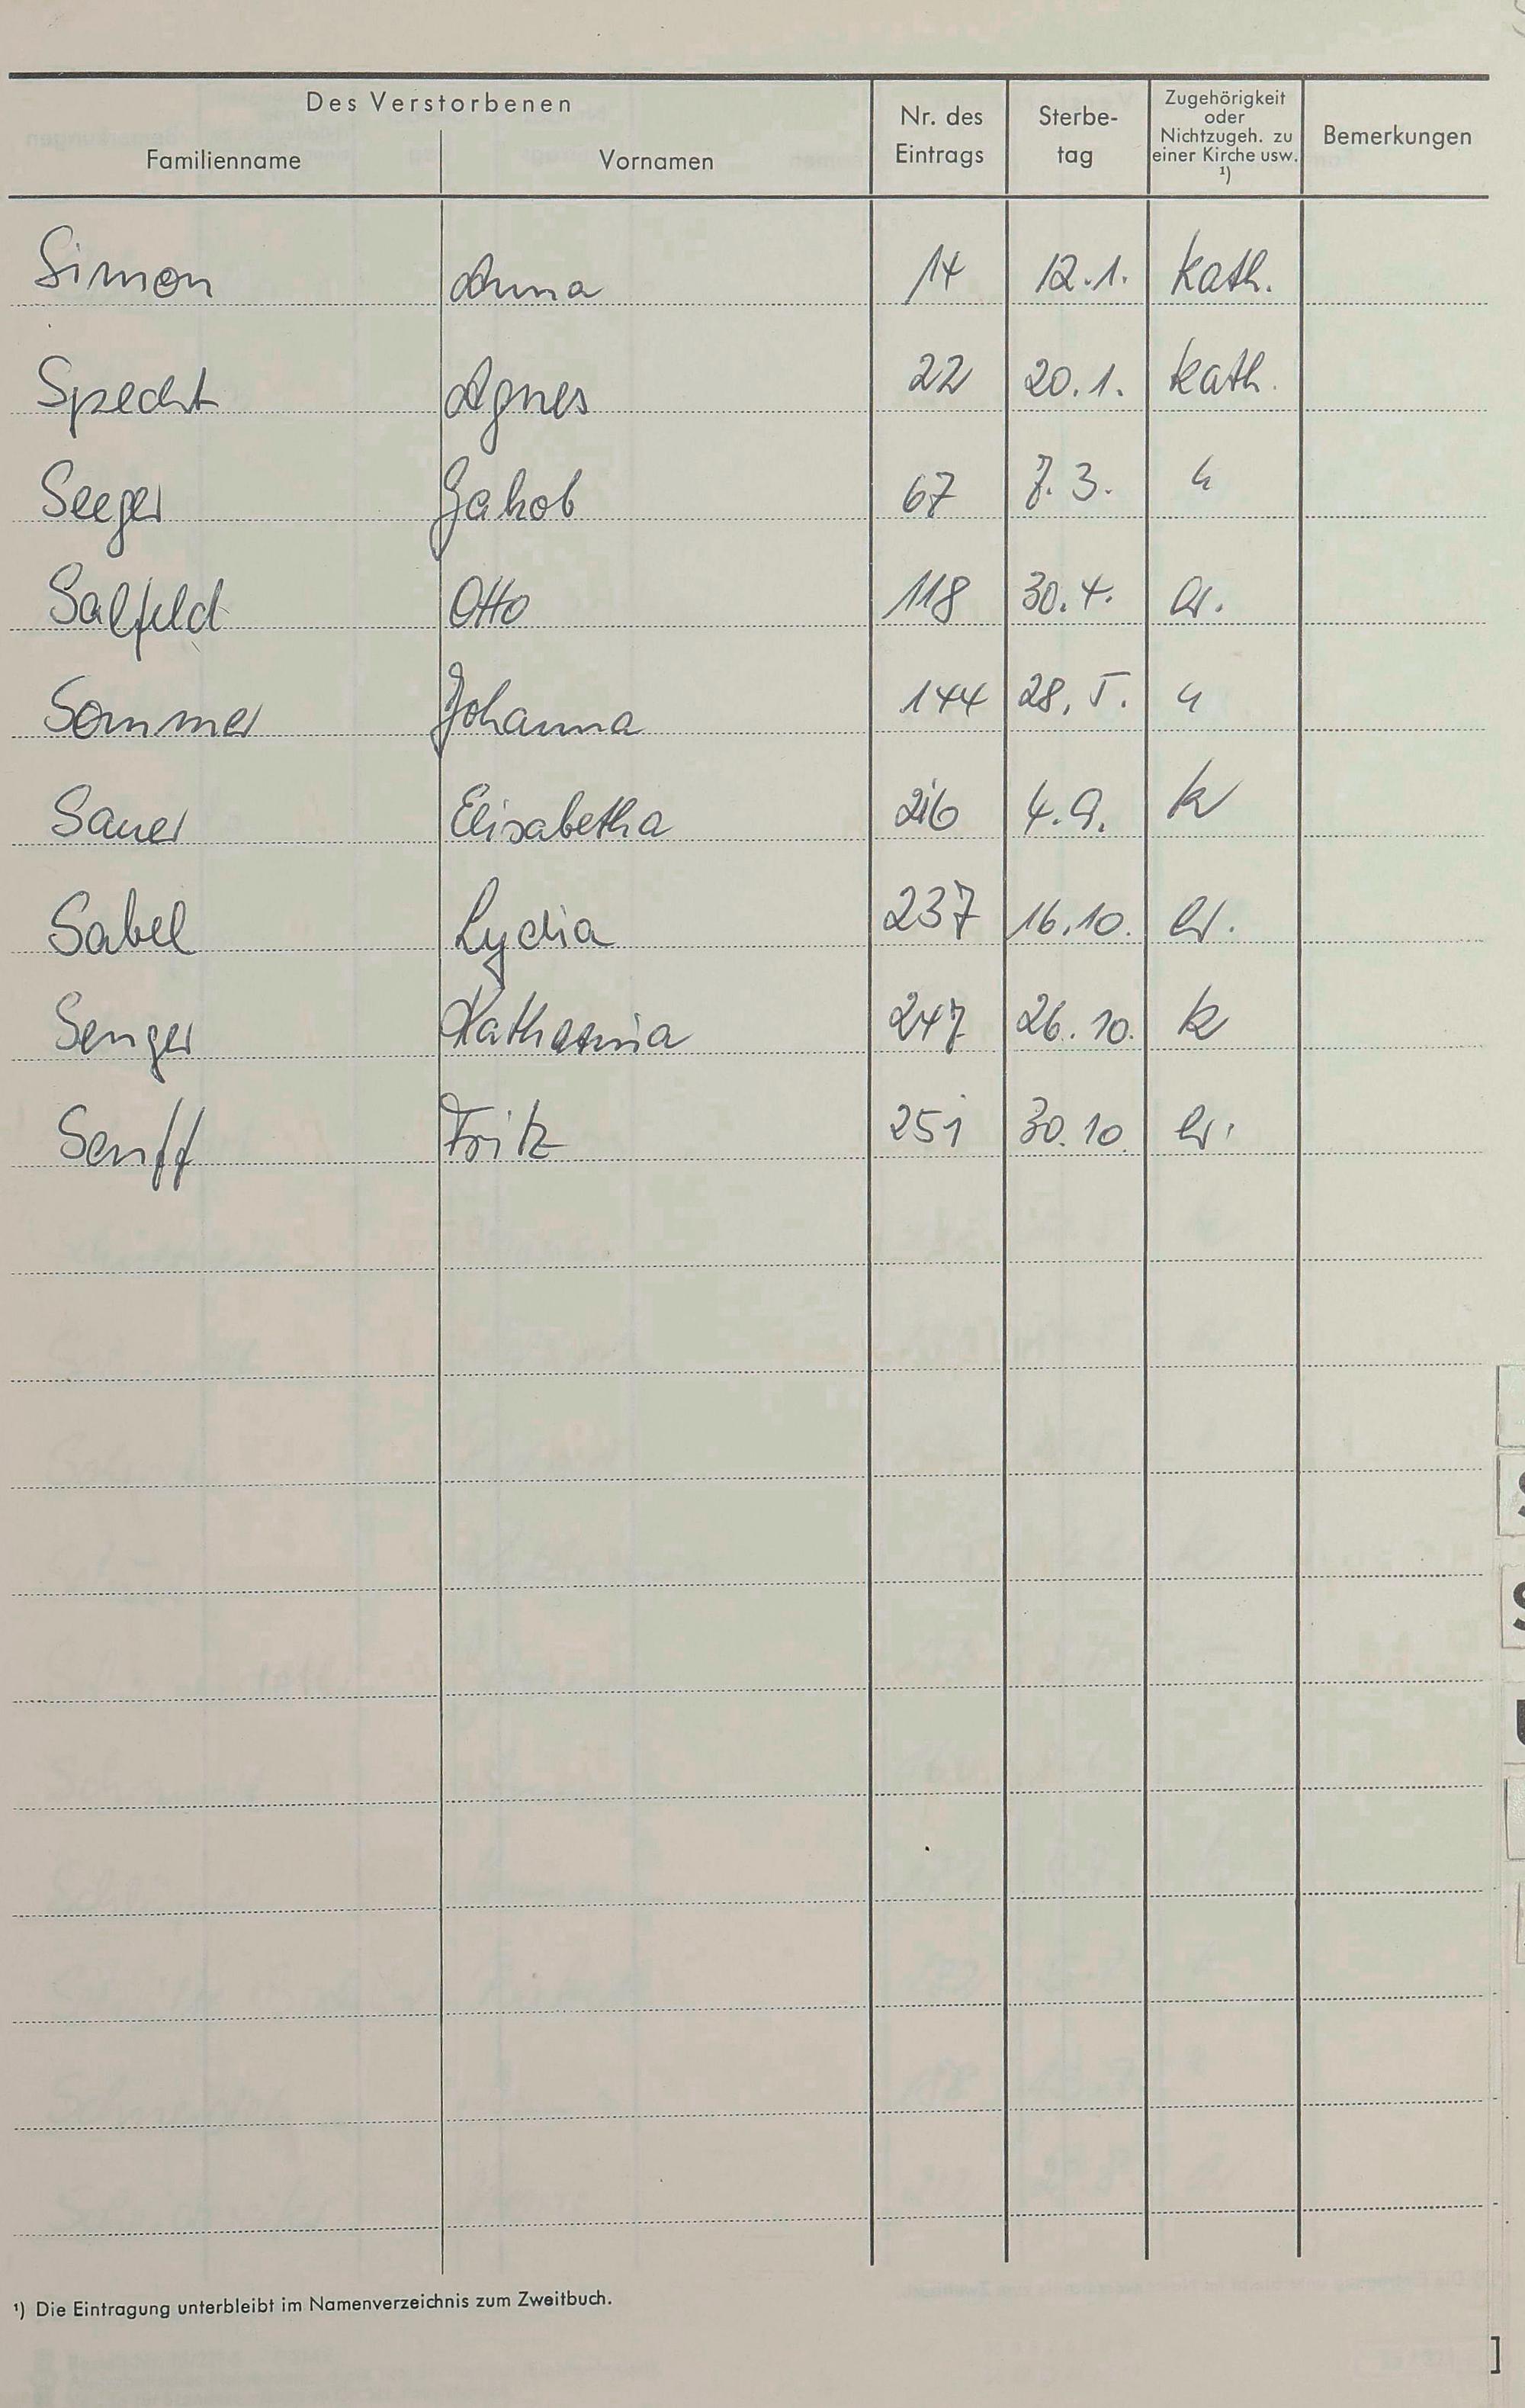 Des Verstorbenen
Familienname Vornamen Nr. des Eintrags Sterbe-tag Zugehörigkeit oder Nichtzugeh. zu einer Kirche usw. ¹) Bemerkungen
Simon Anna 14 12.1. kath.
Specht Agnes 22 20.1. kath.
Seeger Jakob 67 7.3. "
Salfeld Otto 118 30.4. ev.
Sommer Johanna 144 28.5. "
Sauer Elisabetha 216 4.9. k
Sabel Lydia 237 16.10. ev.
Senger Katharina 247 26.10. k
Senff Fritz 251 30.10. ev.
¹) Die Eintragung unterbleibt im Namenverzeichnis zum Zweitbuch.